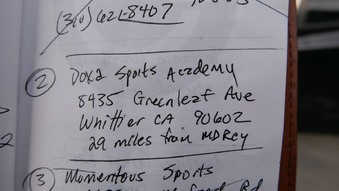 (310) 621-8407
② Doxa Sports Academy
8435 Greenleaf Ave
Whittier CA 90602
29 miles from MDRCY
③ Momentous Sports
Rd